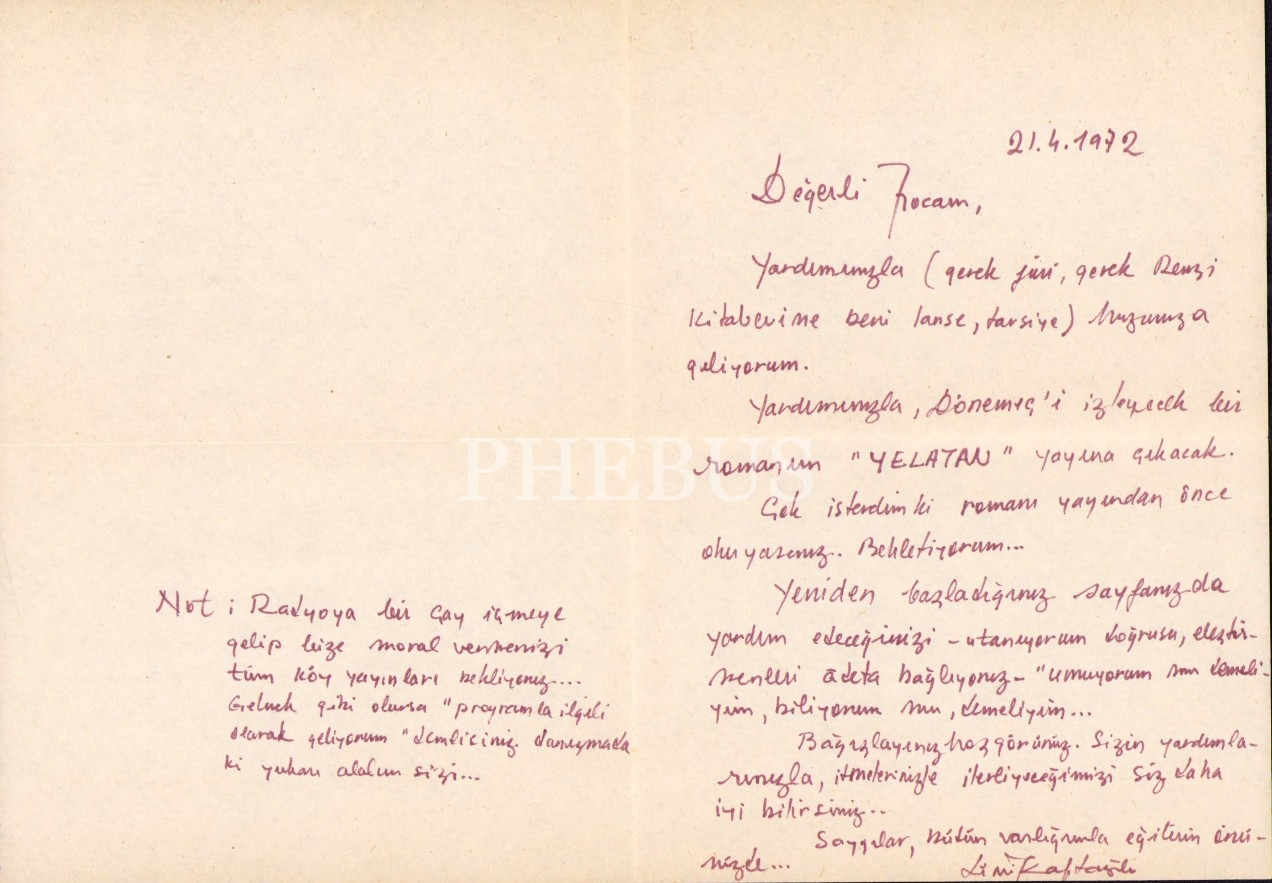 21.4.1972
Değerli Hocam,
Yardımınızla (gerek jüri, gerek Remzi
Kitabevine beni lanse, tavsiye) huzunuza
geliyorum.
Yardımınızla, Dönemeç'i izleyecek bir
romanım "YELATAN" yayına çıkacak.
Çok isterdim ki romanı yayından önce
okuyasınız. Bekletiyorum...
Yeniden başladığınız sayfanızda
yardım edeceğinizi - utanıyorum doğrusu, eleştir-
menleri âdeta bağlıyoruz - "umuyorum mu demeli-
yim, biliyorum mu, demeliyim...
Bağışlayınız hoş görünüz. Sizin yardımla-
rınızla, itmelerinizle ilerliyeceğimizi siz daha
iyi bilirsiniz...
Saygılar, bütün varlığımla eğilirim önü-
nüzde...
Not : Radyoya bir çay içmeye
gelip bize moral vermenizi
tüm köy yayınları bekliyoruz....
Gelmek gibi olursa "programla ilgili
olarak geliyorum" demlisiniz danışmada
ki yukarı alalım sizi...
PHEBUS